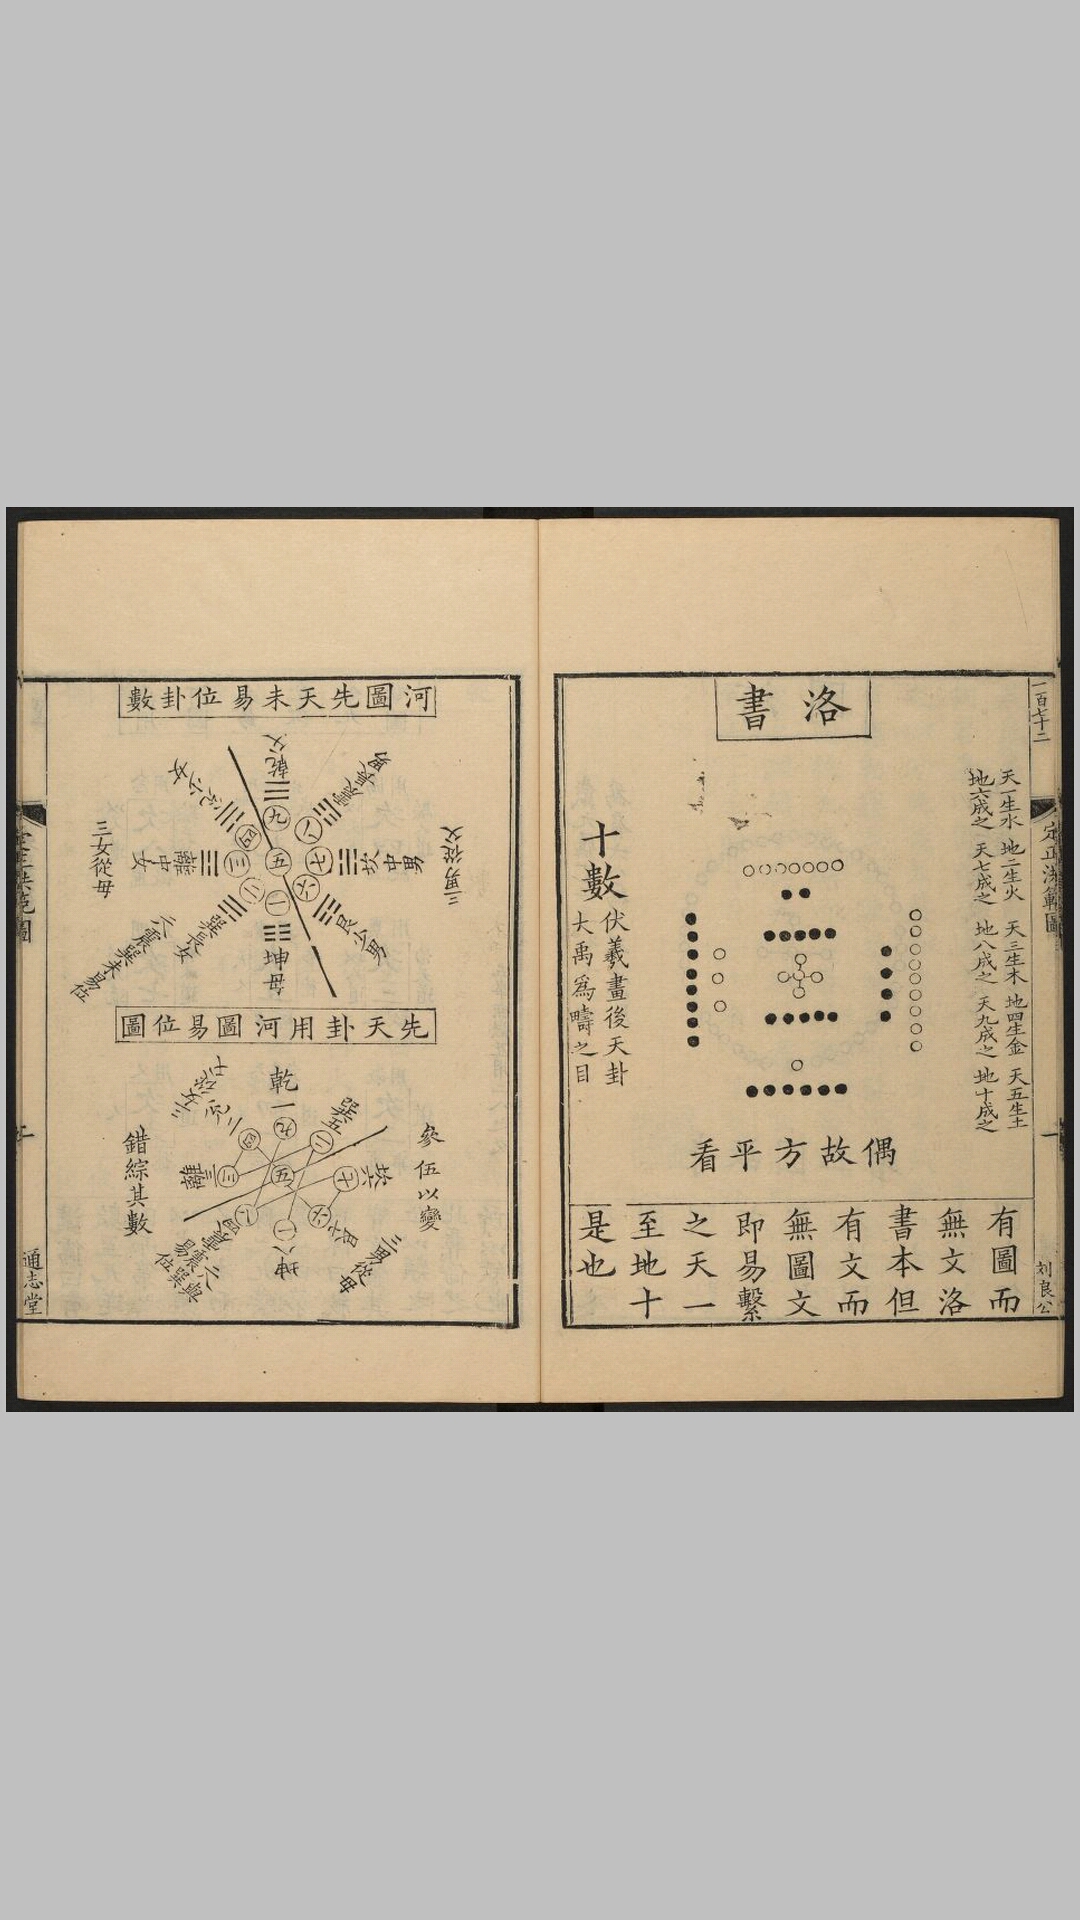 一百七十二
定正洪範圖
一
刘良公
洛書
天一生水 地二生火 天三生木 地四生金 天五生土
地六成之 天七成之 地八成之 天九成之 地十成之
十數
伏羲畫後天卦
大禹為疇之目
偶故方平看
有圖而
無文洛
書本但
有文而
無圖文
即易繫
之天一
至地十
是也
河圖先天未易位卦數
乾父
九
四
三
二
一
五
八
七
六
坎中男
艮少男
坤母
巽長女
離中女
三男從父
三女從母
八震巽未易位
先天卦用河圖易位圖
乾一
九
巽五
二
坎六
七
六
一
坤八
八
三
四
五
參伍以變
錯綜其數
三男從母
通志堂